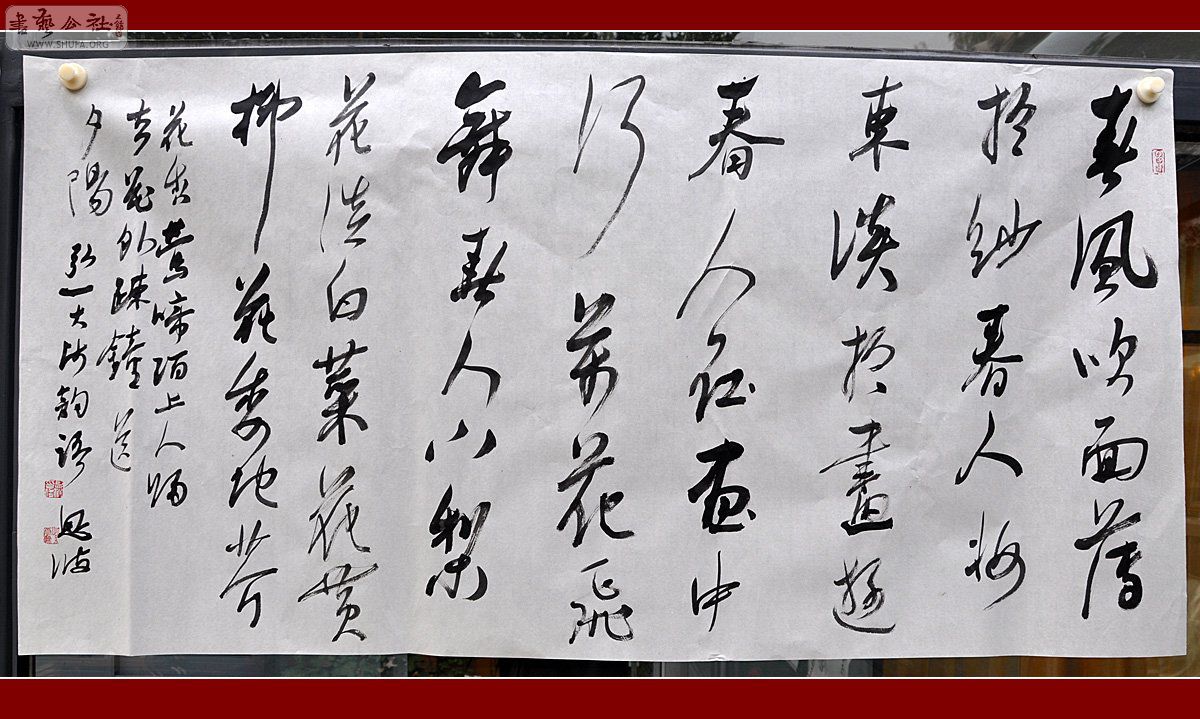 書藝公社
WWW.SHUFA.ORG
春風吹面薄
扵紗春人妝
束淡扵畫遊
春人在画中
行萬花飛
舞春人下梨
花淡白菜花黄
柳花委地芥
花香莺啼陌上人歸
去花外疎鐘送
夕陽 弘一大师韵语